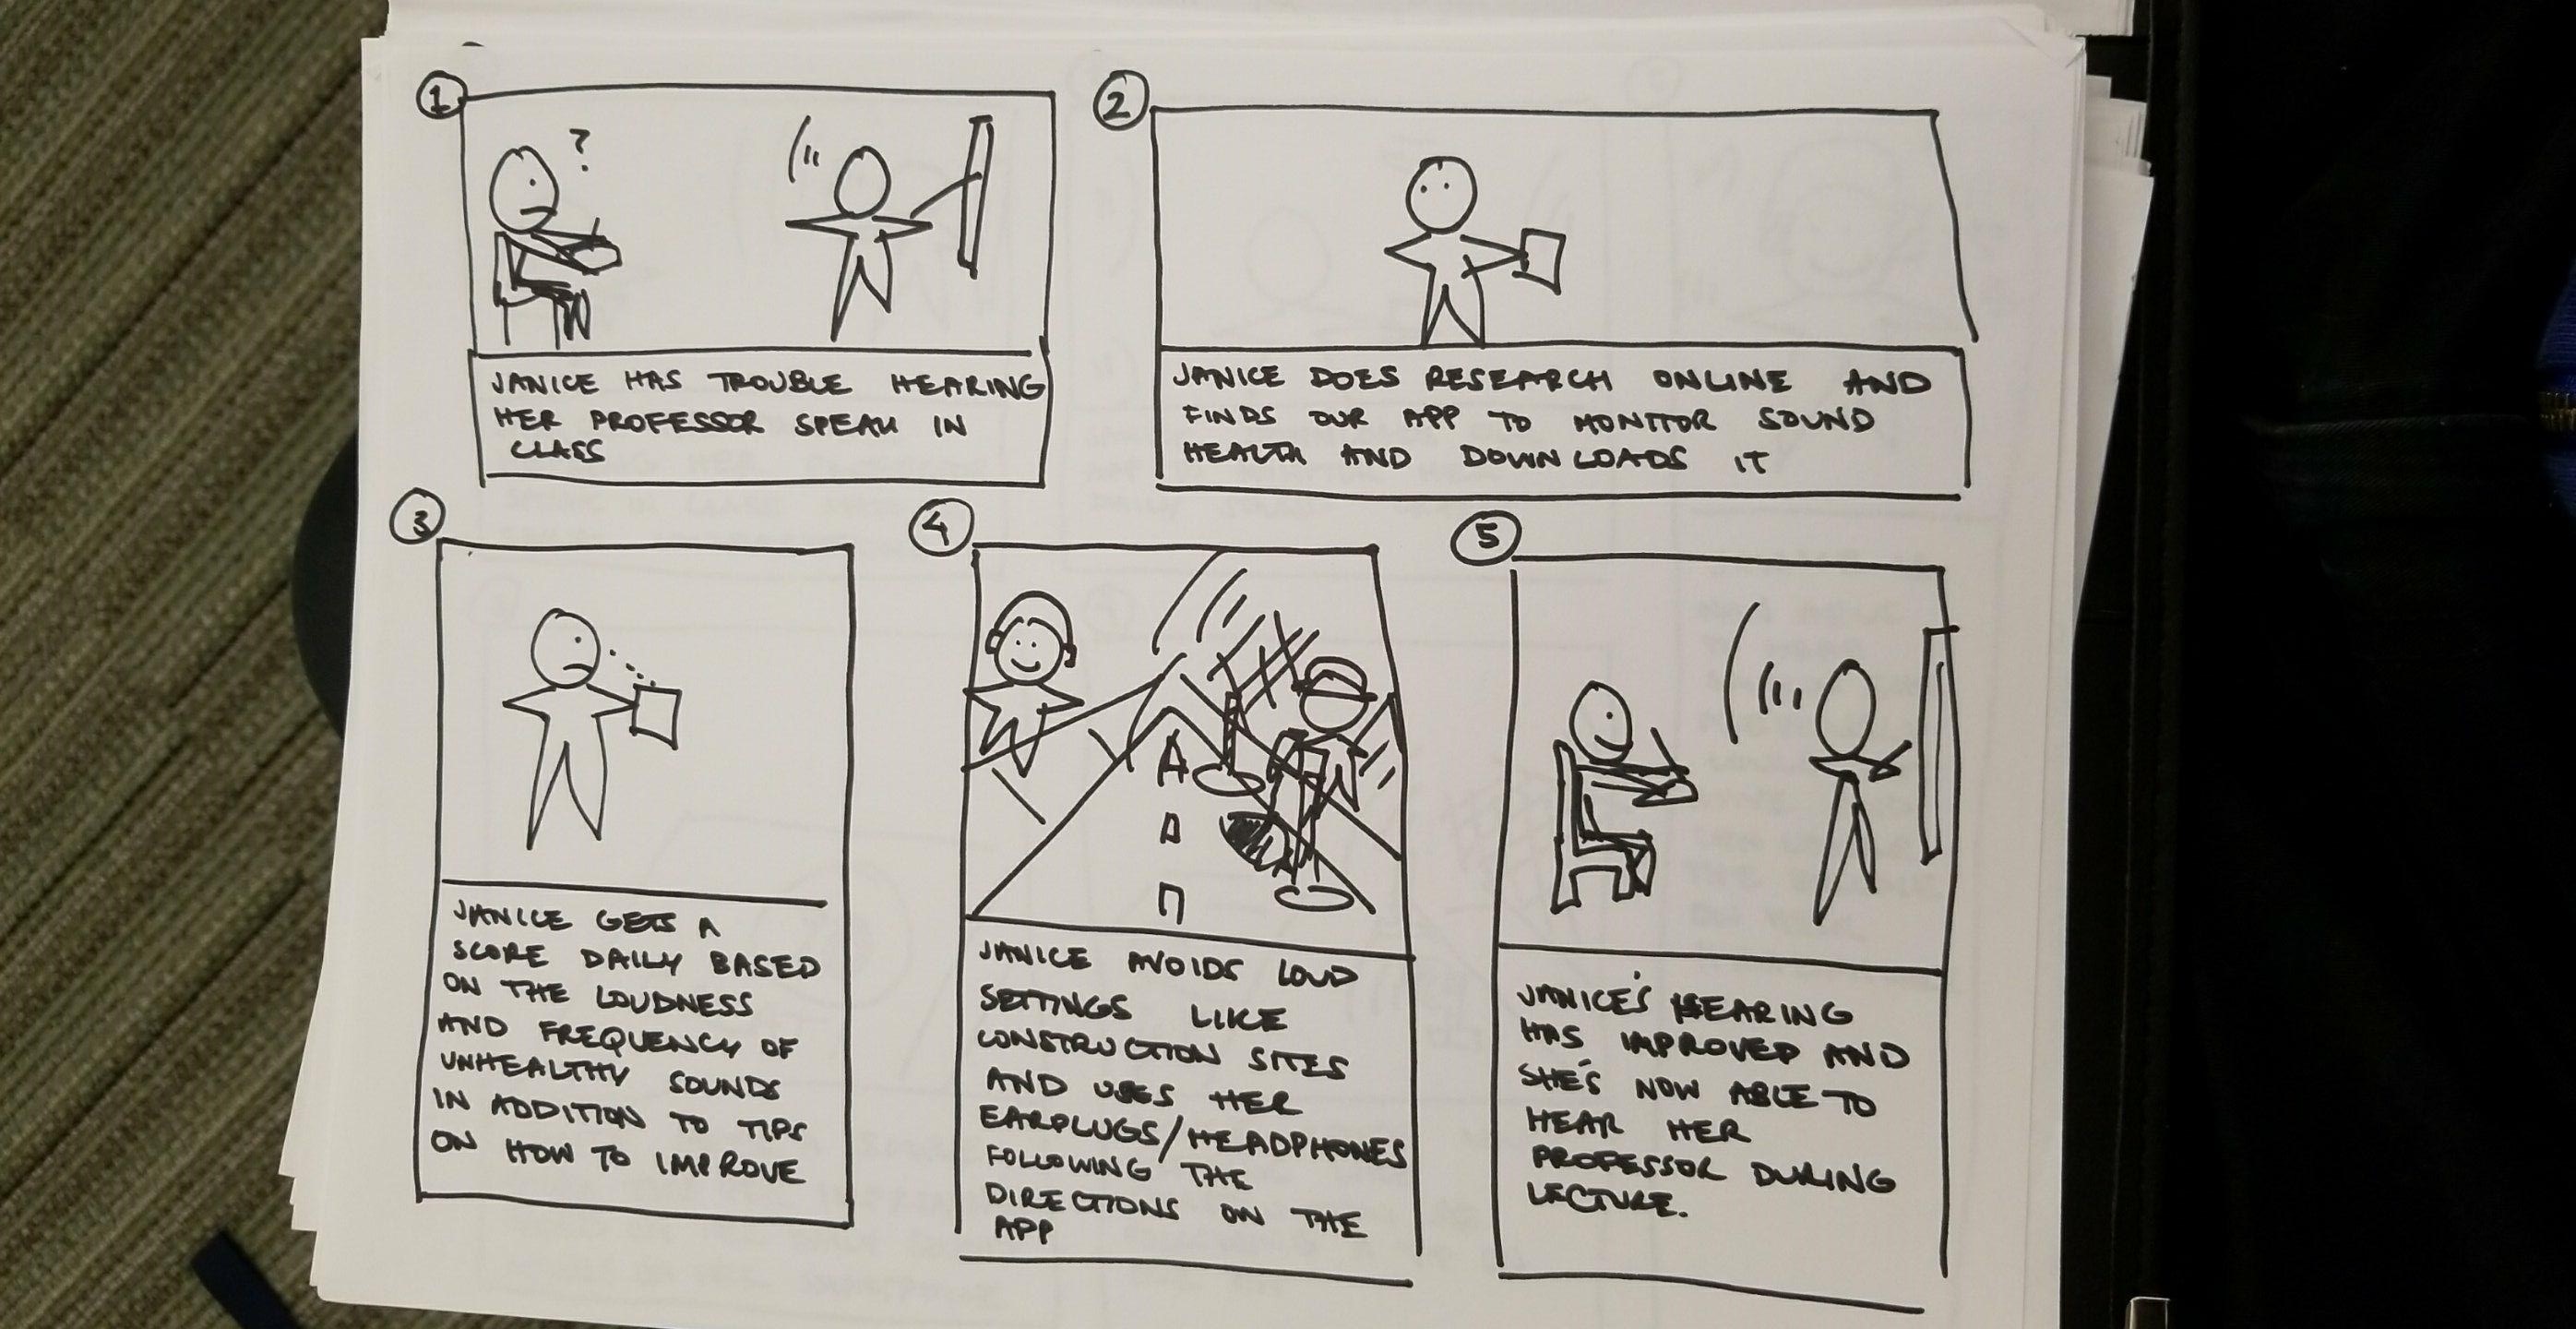 1
?
JANICE HAS TROUBLE HEARING
HER PROFESSOR SPEAK IN
CLASS
2
JANICE DOES RESEARCH ONLINE AND
FINDS OUR APP TO MONITOR SOUND
HEALTH AND DOWNLOADS IT
3
JANICE GETS A
SCORE DAILY BASED
ON THE LOUDNESS
AND FREQUENCY OF
UNHEALTHY SOUNDS
IN ADDITION TO TIPS
ON HOW TO IMPROVE
4
JANICE AVOIDS LOUD
SETTINGS LIKE
CONSTRUCTION SITES
AND USES HER
EARPLUGS/HEADPHONES
FOLLOWING THE
DIRECTIONS ON THE
APP
5
JANICE'S HEARING
HAS IMPROVED AND
SHE'S NOW ABLE TO
HEAR HER
PROFESSOR DURING
LECTURE.